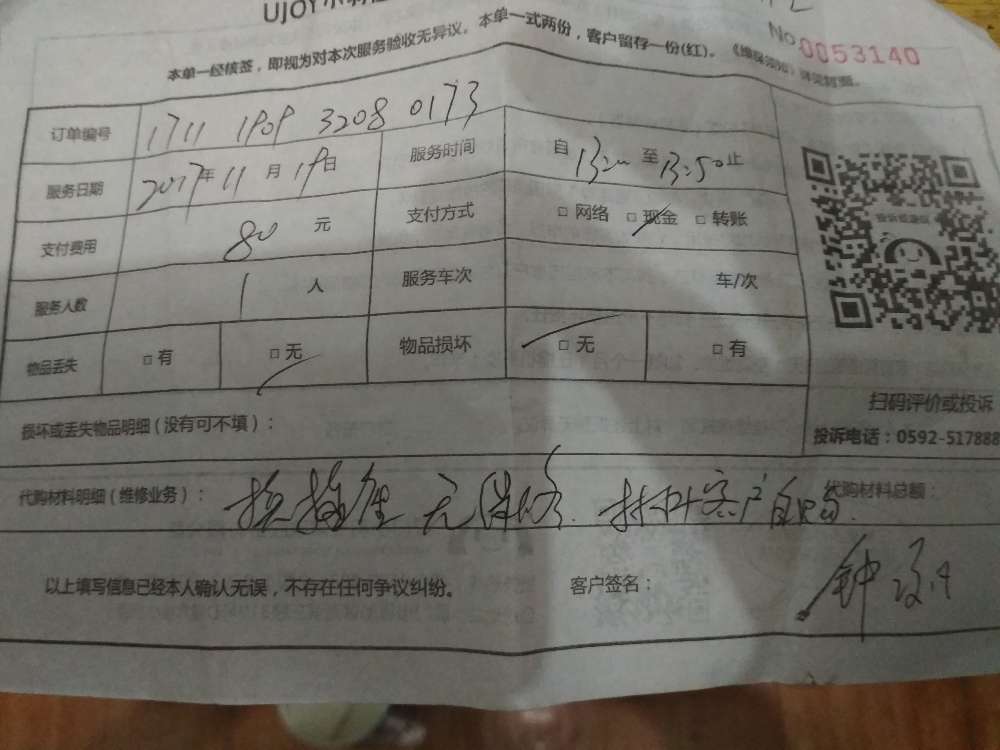 UJOY
No.0053140
本单一经核签，即视为对本次服务验收无异议。本单一式两份，客户留存一份(红)。《维保须知》详见背面。
订单编号 1711 1909 3208 0173
服务日期 2017年11月19日 服务时间 自13:00至13:50止
支付费用 80元 支付方式 □网络 □现金 □转账
服务人数 1人 服务车次 车/次
物品丢失 □有 □无 物品损坏 □无 □有
扫码评价或投诉
损坏或丢失物品明细（没有可不填）：
投诉电话：0592-517888
代购材料明细（维修业务）： 换插座 无保修. 材料客户自购. 代购材料总额：
以上填写信息已经本人确认无误，不存在任何争议纠纷。 客户签名： 钟